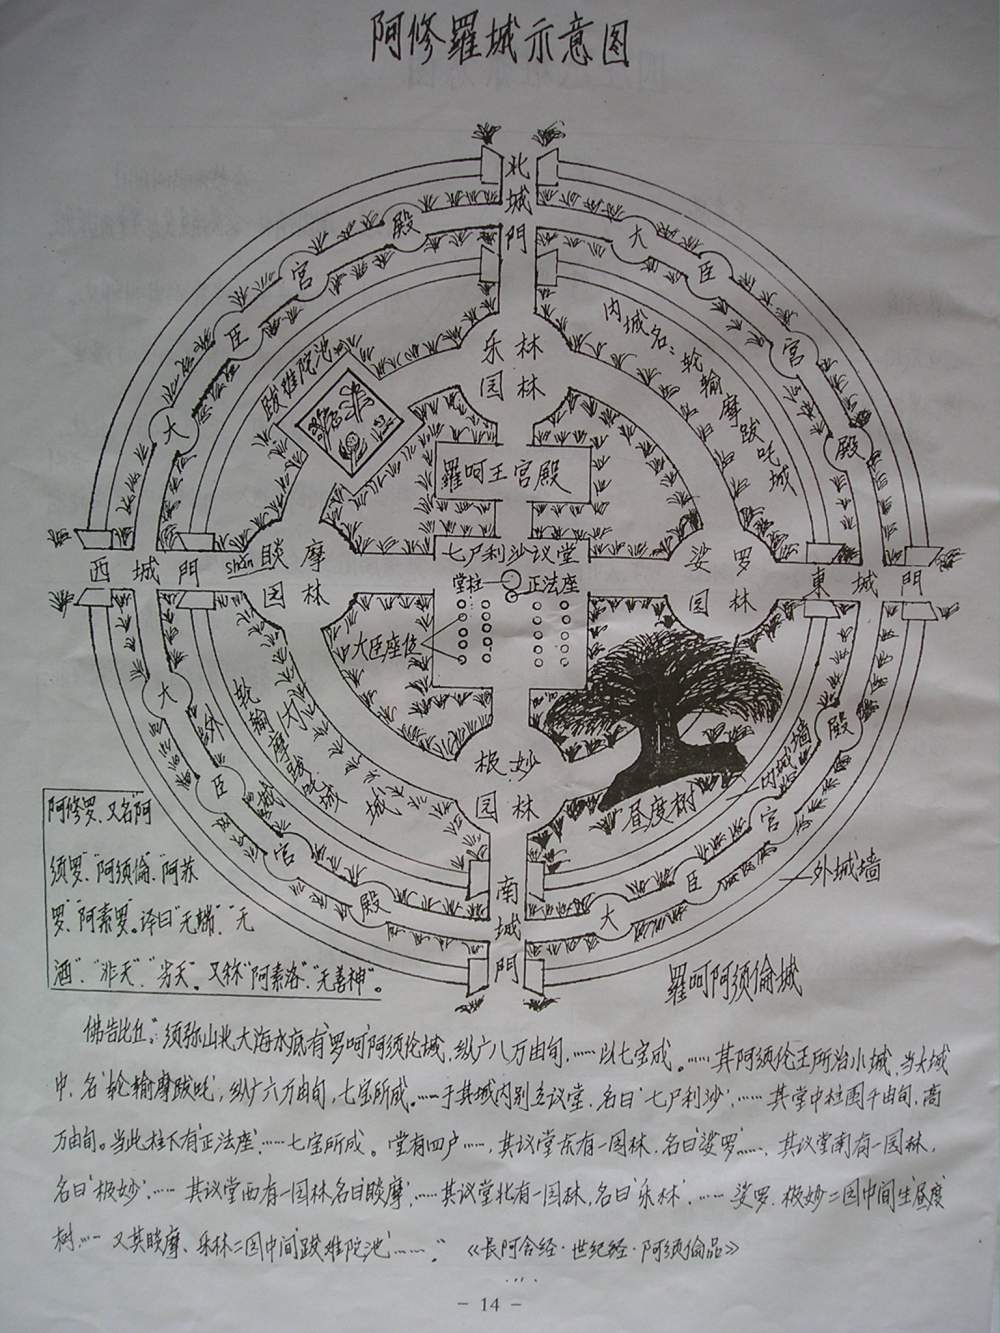 阿修羅城示意图
北城門
大臣宮殿
大臣宮殿
乐林园林
内城名:轮输摩跋吒城
跋难院池
羅呵王宫殿
七尸利沙议堂
堂柱
正法座
大臣座位
西城門
shǎn
睒摩园林
娑罗园林
東城門
极妙园林
昼度树
内城墙
外城墙
轮输摩跋吒城
大臣宮殿
大臣宮殿
南城門
羅呵阿须倫城
阿修罗,又名"阿
须罗"、"阿须倫"、"阿苏
罗"、"阿素罗"。译曰"无端"、"无
酒"、"非天"、"劣天"。又称"阿素洛"、"无善神"。
佛告比丘:"须弥山北大海水底有'罗呵'阿须伦城,纵广八万由旬,……以七宝成。……其阿须伦王所治小城,当大城
中,名'轮输摩跋吒',纵广六万由旬,七宝所成。……于其城内别立议堂,名曰'七尸利沙',……其堂中柱围千由旬,高
万由旬。当此柱下有'正法座',……七宝所成。堂有四户……,其议堂东有一园林,名曰'娑罗'……,其议堂南有一园林,
名曰'极妙',……其议堂西有一园林名曰'睒摩',……其议堂北有一园林,名曰'乐林',……娑罗、极妙二园中间生'昼度'
树,……又其睒摩、乐林二园中间'跋难院池'……。"《长阿含经·世纪经·阿须倫品》
- 14 -